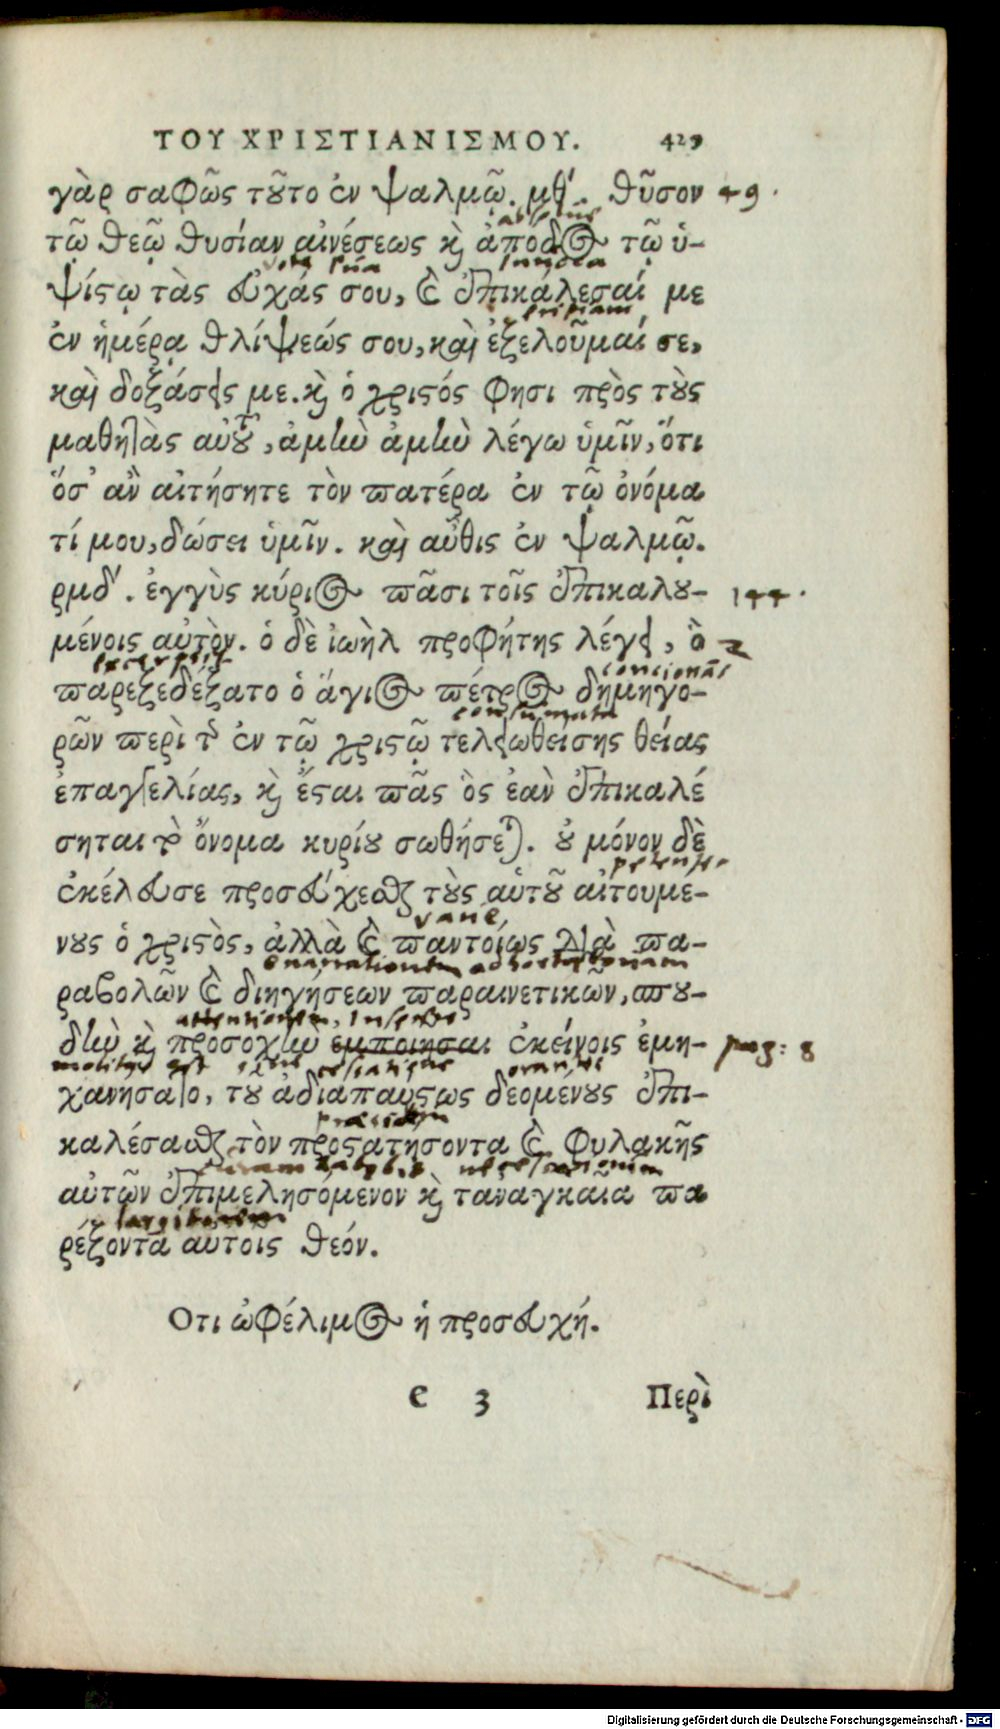 ΤΟΥ ΧΡΙΣΤΙΑΝΙΣΜΟΥ. 429
γὰρ σαφῶς τοῦτο ἐν ψαλμῷ. μθ´. θῦσον 49.
τῷ θεῷ θυσίαν αἰνέσεως καὶ ἀπόδος τῷ ὑ-
vota
ψίστῳ τὰς εὐχάς σου, καὶ ἐπικάλεσαί με
eripiam
ἐν ἡμέρᾳ θλίψεώς σου, καὶ ἐξελοῦμαί σε,
καὶ δοξάσεις με. καὶ ὁ χριστός φησι πρὸς τοὺς
μαθητὰς αὐτοῦ, ἀμὴν ἀμὴν λέγω ὑμῖν, ὅτι
ὅσ᾽ ἂν αἰτήσητε τὸν πατέρα ἐν τῷ ὀνόμα
τί μου, δώσει ὑμῖν. καὶ αὖθις ἐν ψαλμῷ.
ρμδ´. ἐγγὺς κύριος πᾶσι τοῖς ἐπικαλου- 144.
μένοις αὐτὸν. ὁ δὲ ἰωὴλ προφήτης λέγει, ὃ 2
παρεξεδέξατο ὁ ἅγιος πέτρος δημηγο-
ρῶν περὶ τῆς ἐν τῷ χριστῷ τελειωθείσης θείας
ἐπαγγελίας, καὶ ἔσται πᾶς ὃς ἐὰν ἐπικαλέ
σηται τὸ ὄνομα κυρίου σωθήσεται. οὐ μόνον δὲ
ἐκέλευσε προσεύχεσθαι τοὺς αὑτοῦ αἰτουμέ-
varie
νους ὁ χριστὸς, ἀλλὰ καὶ παντοίως διὰ πα-
ραβολῶν καὶ διηγήσεων παραινετικῶν, σπου-
δὴν καὶ προσοχὴν ἐμποιῆσαι ἐκείνοις ἐμη- pag: 8
χανήσατο, τοῦ ἀδιαπαύστως δεομένους ἐπι-
καλέσασθαι τὸν προστατήσοντα καὶ φυλακῆς
αὐτῶν ἐπιμελησόμενον καὶ τἀναγκαῖα πα
ρέξοντα αὐτοῖς θεόν.
Οτι ὠφέλιμος ἡ προσευχή.
e 3 Περὶ
Digitalisierung gefördert durch die Deutsche Forschungsgemeinschaft - DFG